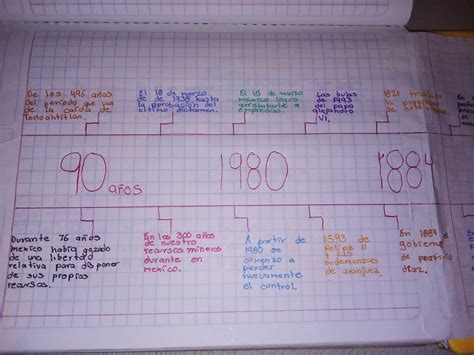 De los 496 años
del periodo que va
de la caida de
Tenochtitlán.
El 18 de marzo
de 1938 hasta
la aprobación del
ultimo dictamen.
El 18 de marzo
mexico logro
arrebatarle a
empresas.
Las bulas
de 1493
del papa
alejandro
VI.
1821
90 años
1980
1884
Durante 76 años
mexico había gozado
de una libertad
relativa para disponer
de sus propios
recursos.
En los 300 años
de nuestro
recursos mineros
durante en
mexico.
A partir de
1980 se
comenzo a
perder
nuevamente
el control.
1593 de
Felipe II
y las
ordenanzas
de aranjuez.
En 1884
gobierno
de porfirio
diaz.